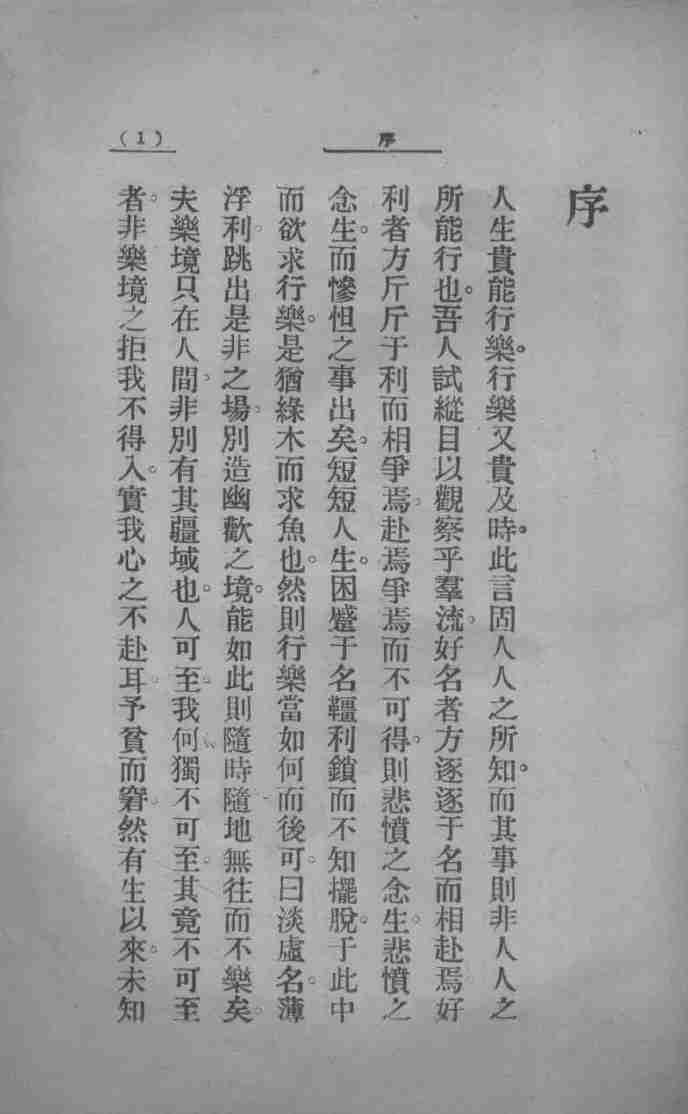 序
(1)
序
人生貴能行樂。行樂又貴及時。此言固人人之所知。而其事則非人人之
所能行也。吾人試縱目以觀察乎羣流。好名者方逐逐于名而相赴焉好
利者方斤斤于利而相爭焉。赴焉爭焉而不可得。則悲憤之念生。悲憤之
念生。而慘怛之事出矣。短短人生。困蹙于名韁利鎖而不知擺脫。于此中
而欲求行樂。是猶綠木而求魚也。然則行樂當如何而後可。曰淡虛名。薄
浮利。跳出是非之場。別造幽歡之境。能如此則隨時隨地無往而不樂矣。
夫樂境只在人間。非別有其疆域也。人可至。我何獨不可至。其竟不可至
者。非樂境之拒我不得入。實我心之不赴耳。予貧而窘。然有生以來。未知